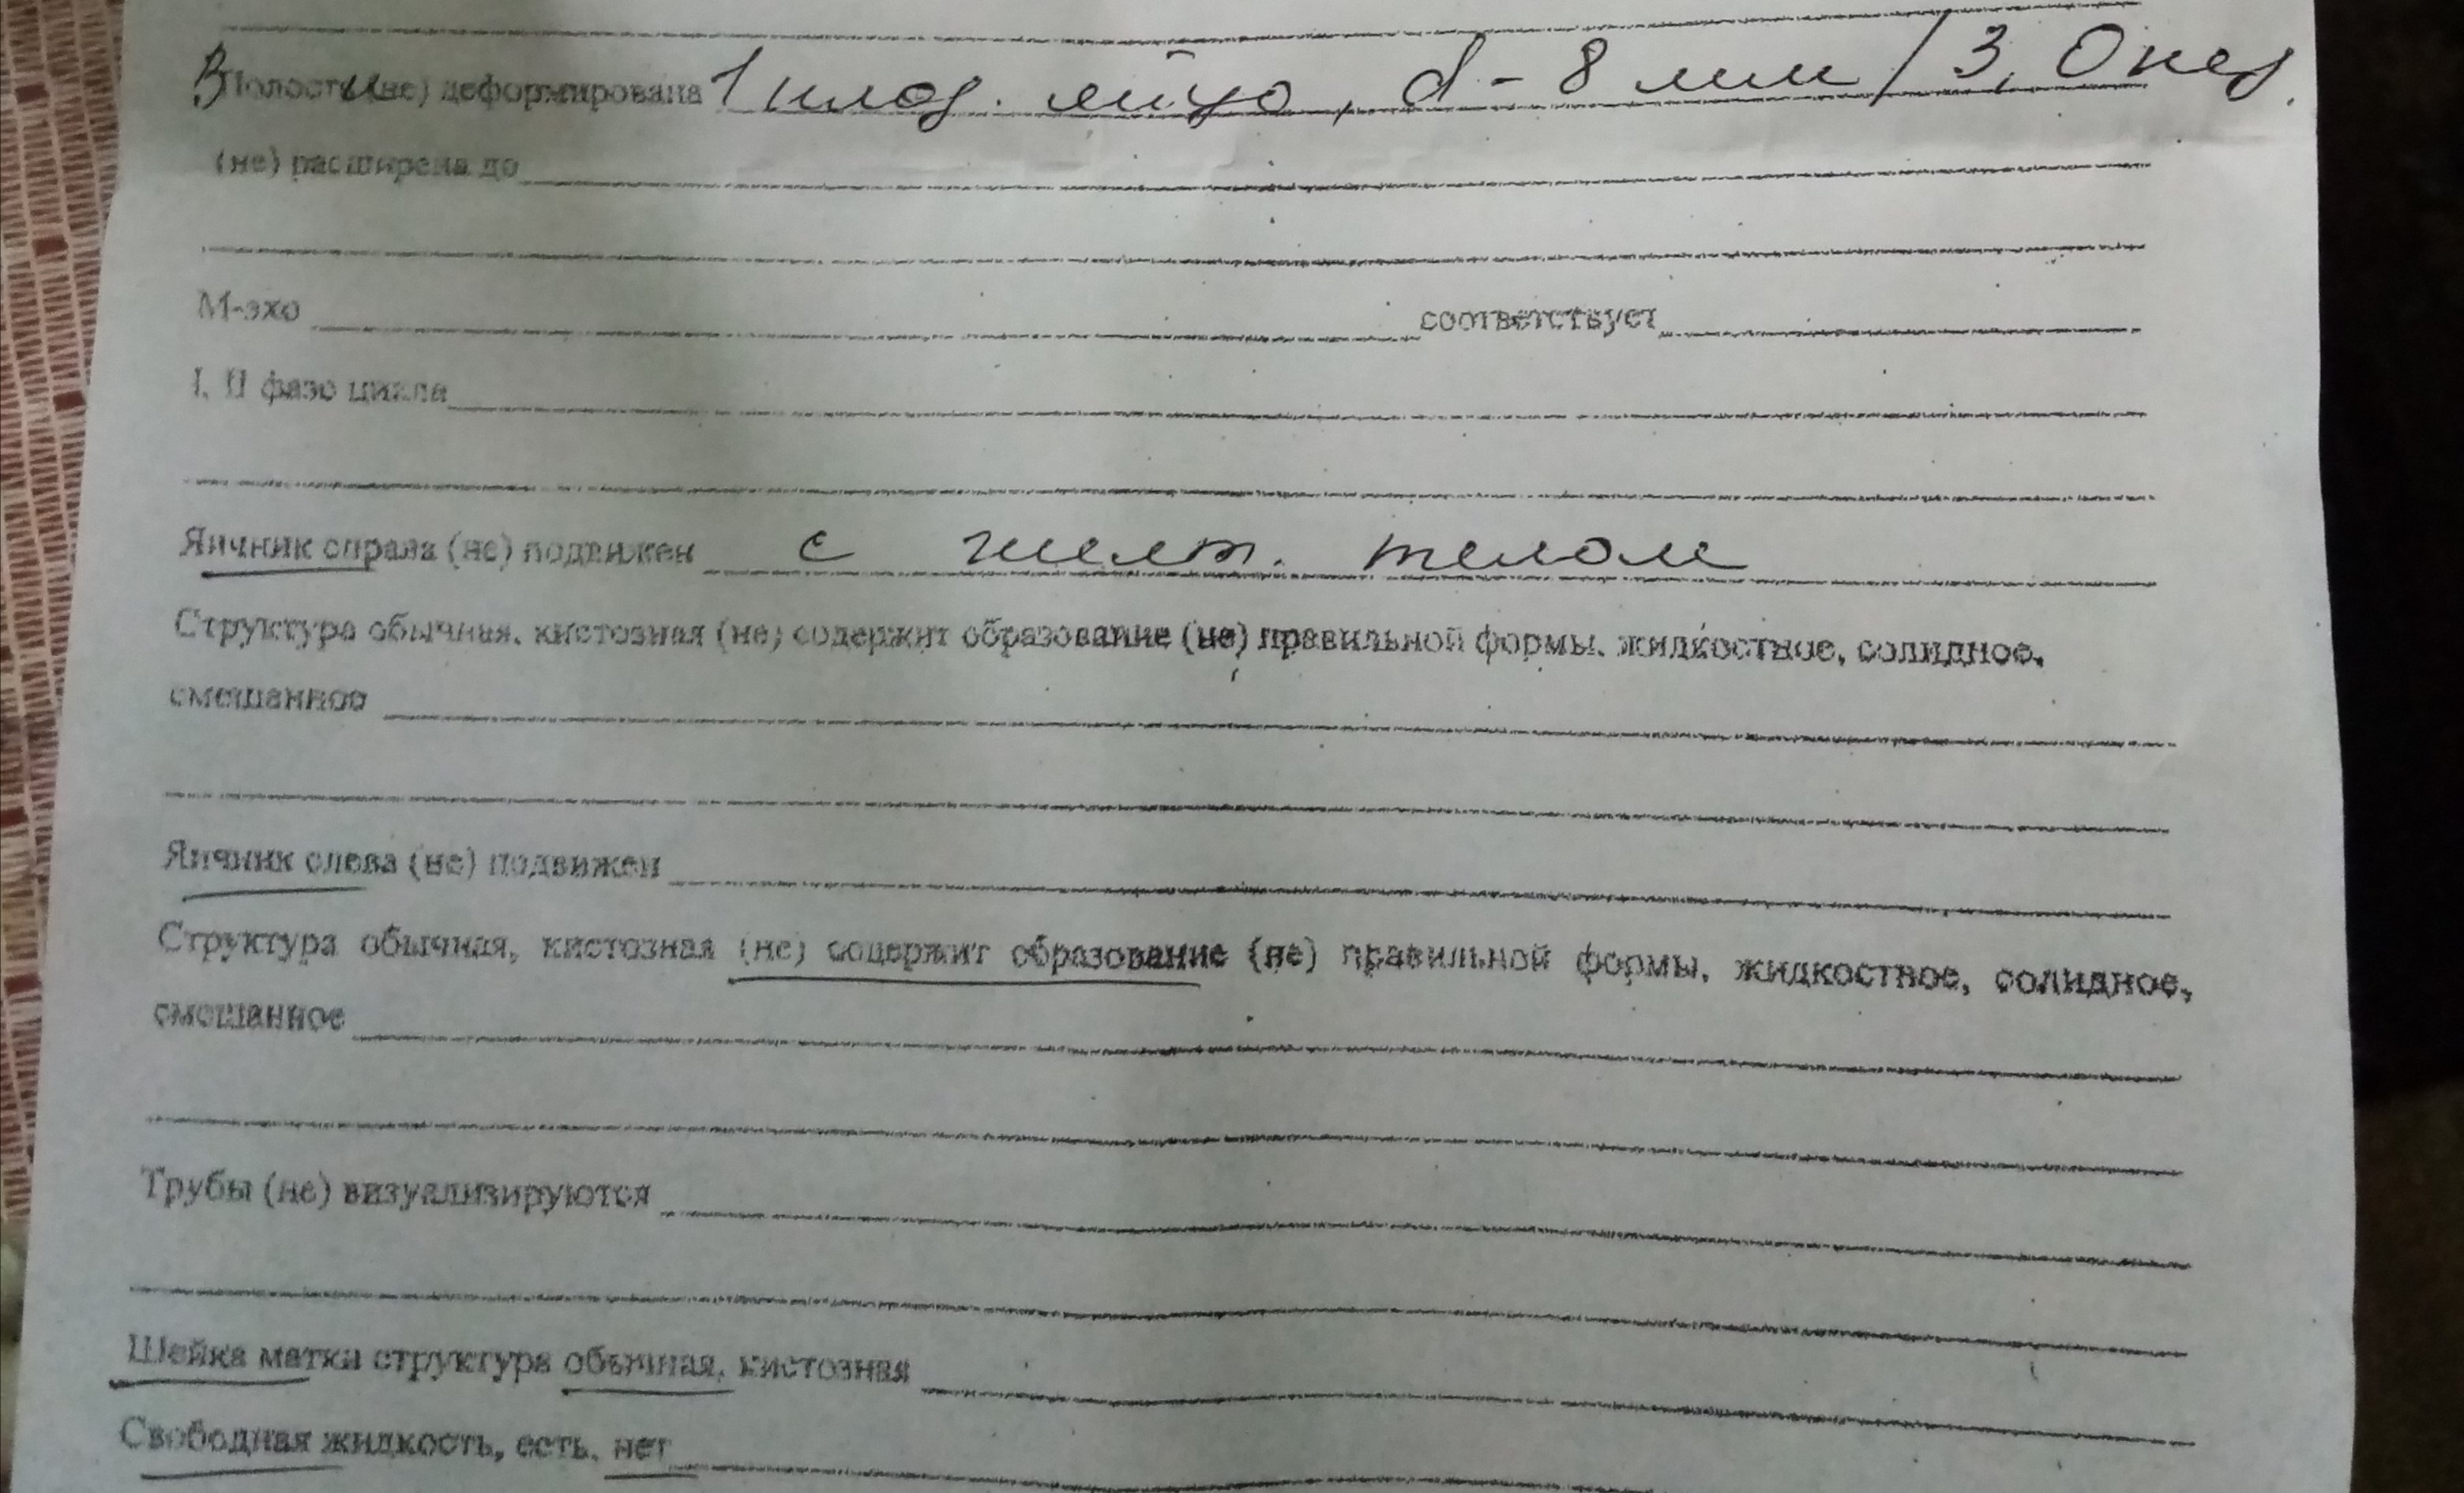 В Полости (не) деформирована 1 плод. яйцо, d - 8 мм / 3, 0 нед.
(не) расширена до
М-эхо соответствует
I, II фазе цикла
Яичник справа (не) подвижен с желт. телом
Структура обычная, кистозная (не) содержит образование (не) правильной формы, жидкостное, солидное,
смешанное
Яичник слева (не) подвижен
Структура обычная, кистозная (не) содержит образование (не) правильной формы, жидкостное, солидное,
смешанное
Трубы (не) визуализируются
Шейка матки структура обычная, кистозная
Свободная жидкость, есть, нет